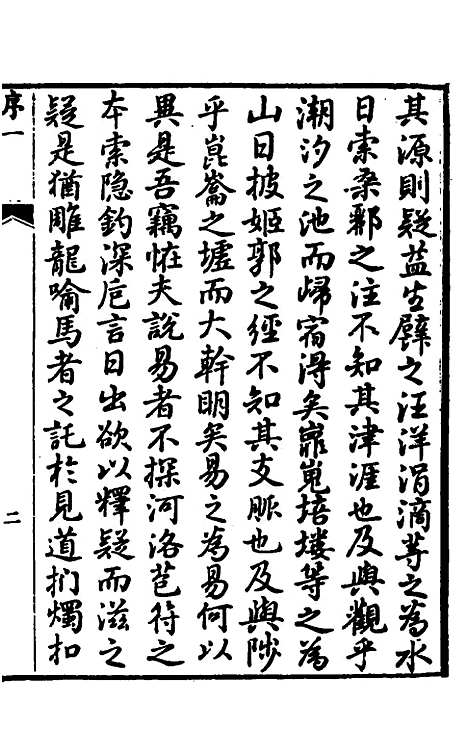 其源則疑益生譬之汪洋涓滴等之為水
日索桑酈之注不知其津涯也及與觀乎
潮汐之池而歸宿得矣嵬培塿等之為
山日披姬郭之經不知其支脈也及與陟
乎崑崙之墟而大幹明矣易之為易何以
異是吾竊怪夫說易者不探河洛苞符之
本索隱鈎深卮言日出欲以釋疑而滋之
疑是猶雕龍喻馬者之託於見道捫燭扣
序一
二